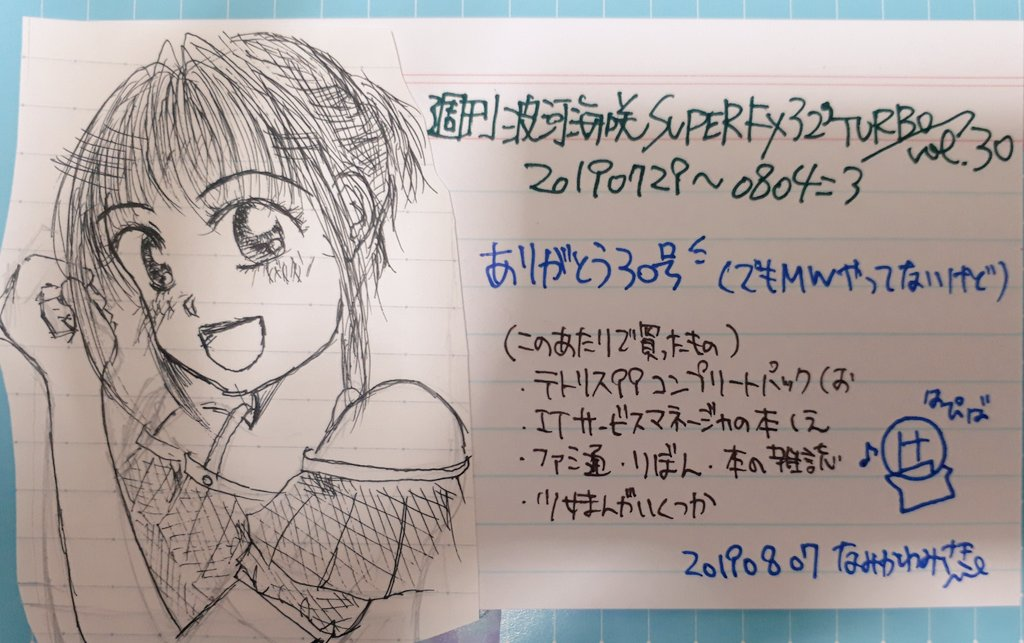 週刊 波河海咲 SUPER FX32 TURBO vol.30
20190729～0804=3
ありがとう30号 (でもMWやってないけど)
(このあたりで買ったもの)
・テトリス99コンプリートパック(お
・ITサービスマネージャの本くえ
・ファミ通・りぼん・本の雑誌
・少女まんがいくつか
はぴば
20190807 なみかわみさき